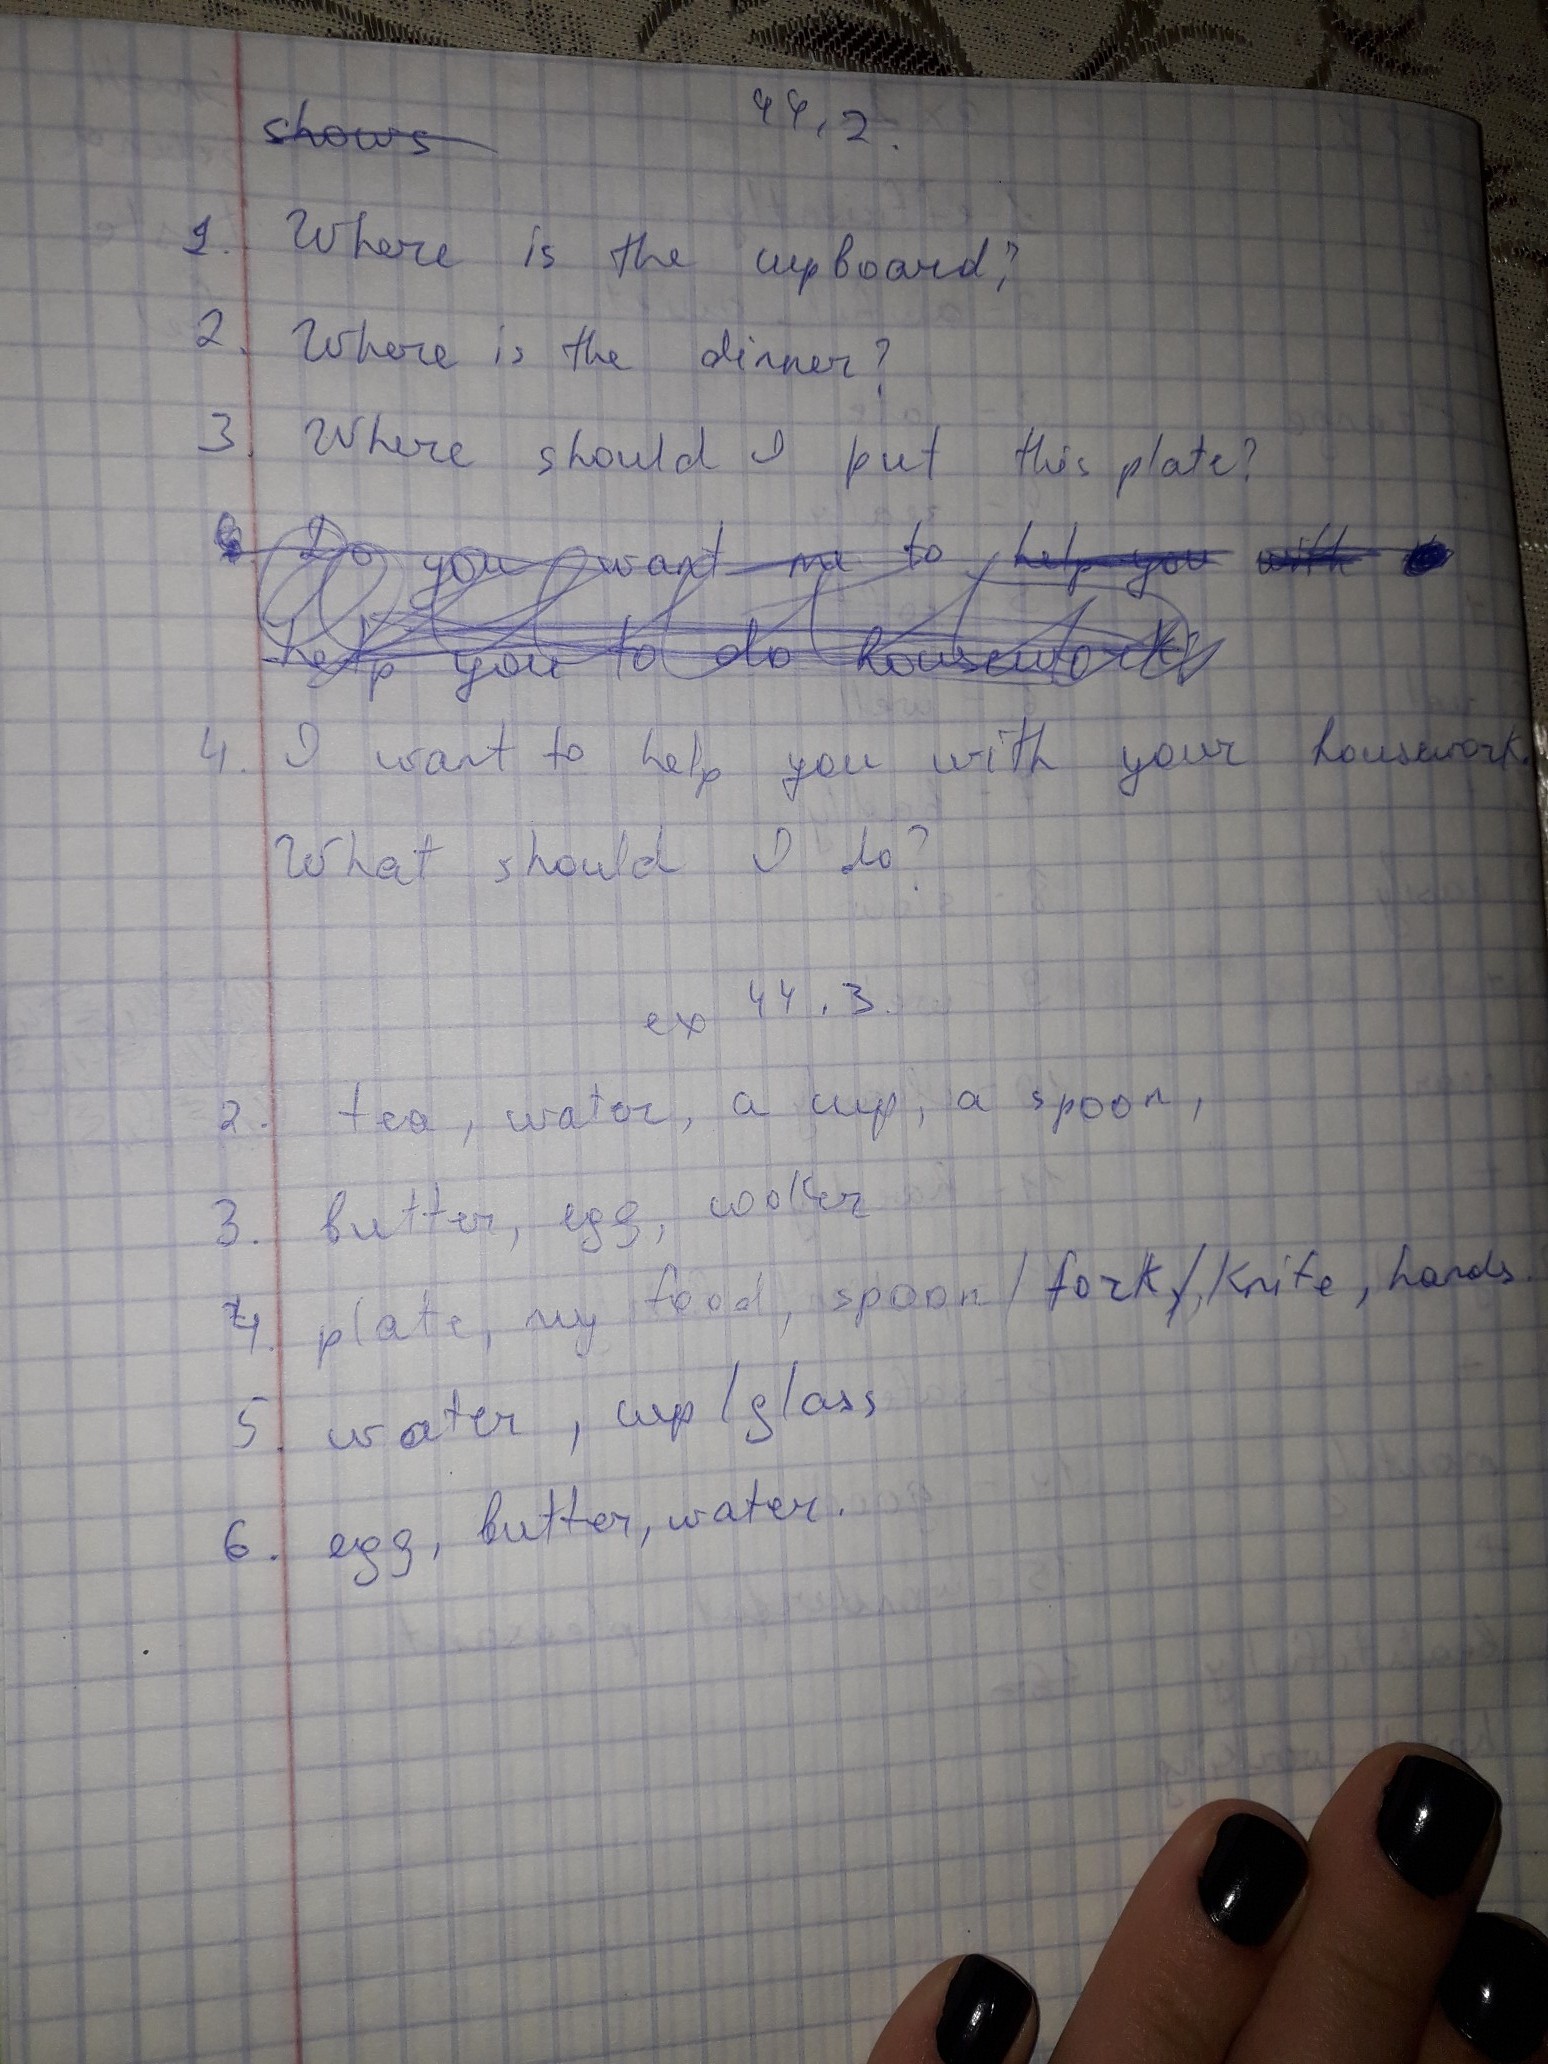 shows
44.2.
1. Where is the cupboard?
2. Where is the dinner?
3. Where should I put this plate?
Do you want me to help you with
help you to do housework
4. I want to help you with your housework.
What should I do?
ex 44.3.
2. tea, water, a cup, a spoon,
3. butter, egg, cooker
4. plate, my food, spoon/fork/knife, hands.
5. water, cup/glass
6. egg, butter, water.